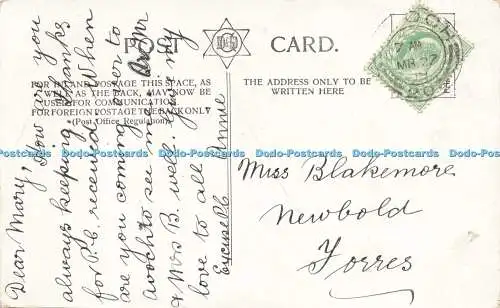 POST CARD.
FOR INLAND POSTAGE THIS SPACE, AS
WELL AS THE BACK, MAY NOW BE
USED FOR COMMUNICATION.
FOR FOREIGN POSTAGE THE BACK ONLY
(Post Office Regulation)
THE ADDRESS ONLY TO BE
WRITTEN HERE
OCH
7 AM
Dear Mary, How are you
always keeping. Thanks
for P.C. received. When
are you coming over to
avoch to see me. Are Mr
& Mrs B. well. give my
love to all Annie
Excuse Pb
Miss Blakemore
Newbold
Forres
Dodo-Postcards Dodo-Postcards Dodo-Postcards Dodo-Postcards Dodo-Postcards Dodo-Postcards